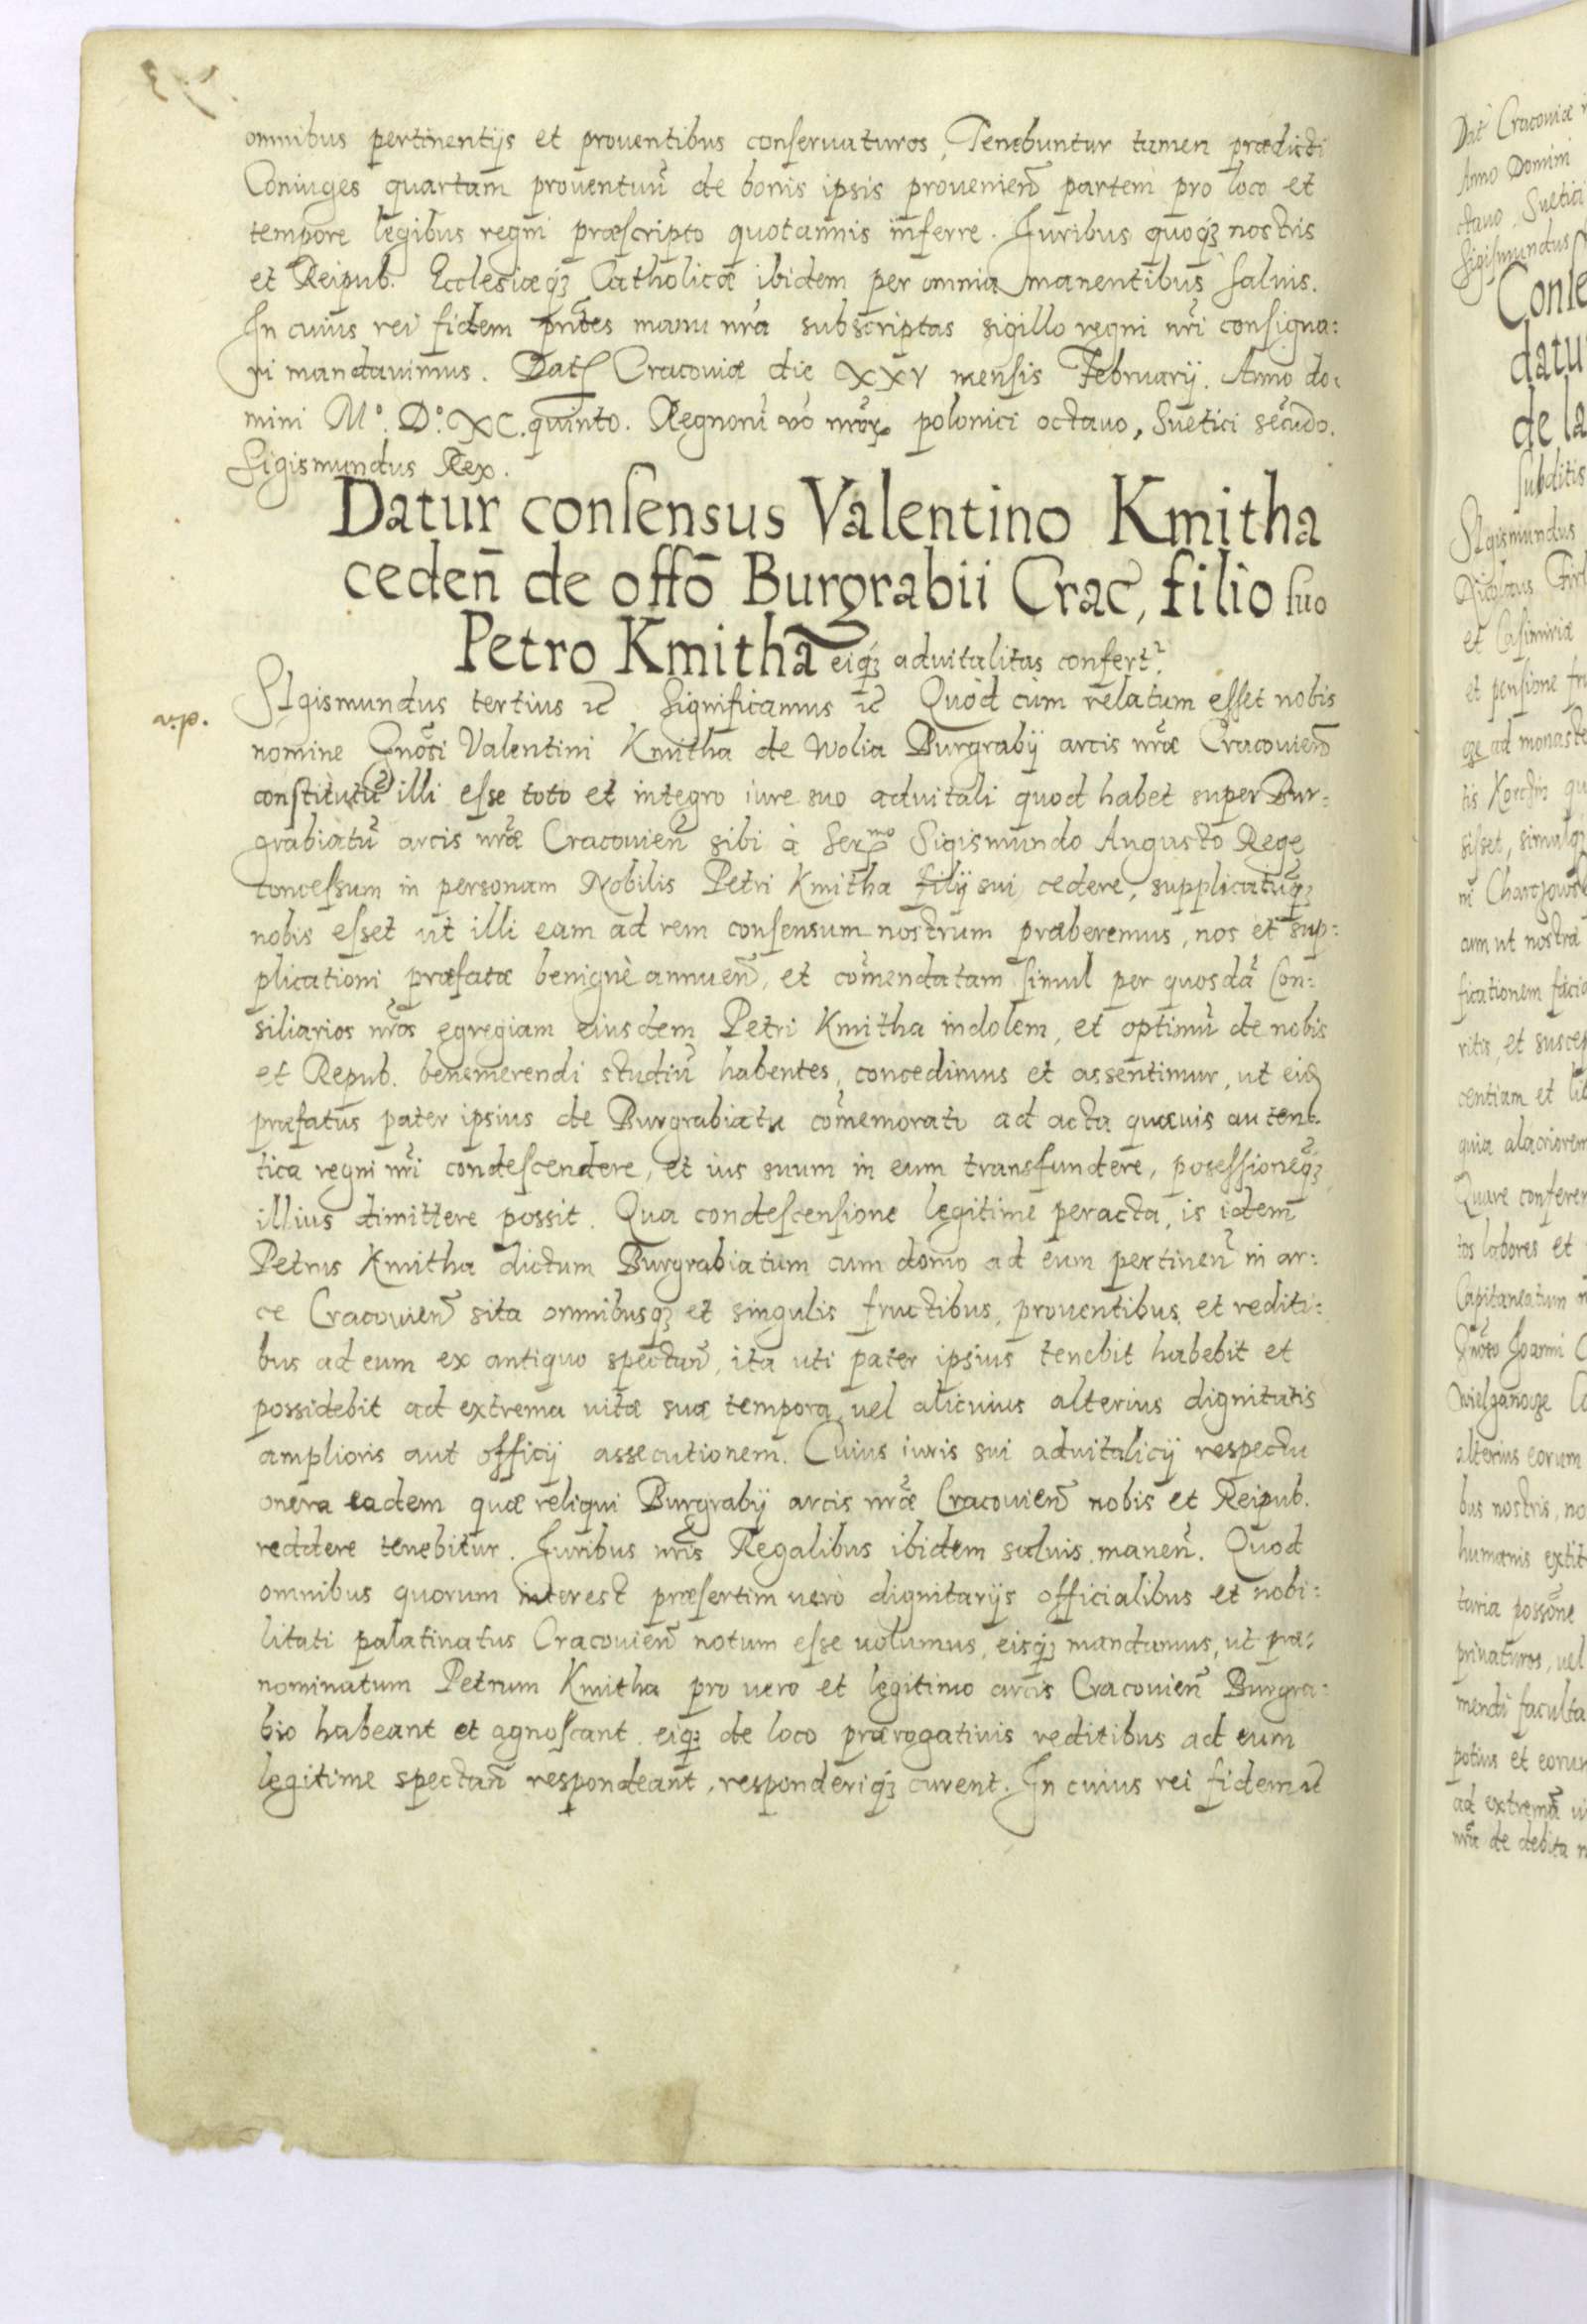 omnibus pertinentijs et prouentibus conseruaturos, Tenebuntur tamen prædicti
Coniuges quartam prouentuũ de bonis ipsis prouenieñ partem pro loco et
tempore legibus regni præscripto quotannis inferre. Iuribus quoqȝ nostris
et Reipub. Ecclesiæqȝ Catholicæ ibidem per omnia manentibus saluis.
In cuius rei fidem pñtes manu nr̃a subscriptas sigillo regni nr̃i consigna:
ri mandauimus. Dat Cracouiæ die XXV mensis February. Anno do:
mini Mº. Dº. XC. quinto. Regnorũ vo nr̃oꝝ polonici octauo, Suetici secũdo.
Sigismundus Rex.
Datur consensus Valentino Kmitha
cedeñ de offõ Burgrabii Crac̃, filio suo
Petro Kmitha eiqȝ aduitalitas confert.
SIgismundus tertius ꝛc̃ Significamus ꝛc̃ Quòd cùm relatum esset nobis
nomine Gnõsi Valentini Kmitha de Wolia Burgrabij arcis nr̃æ Cracouieñ
constitutũ illi esse toto et integro iure suo aduitali quod habet super Bur:
grabiatũ arcis nr̃æ Cracouieñ sibi à Ser.mo Sigismundo Augusto Rege
concessum in personam Nobilis Petri Kmitha filij sui cedere, supplicatũqȝ
nobis esset ut illi eam ad rem consensum nostrum præberemus, nos et sup:
plicationi præfatæ benignè annueñ, et com̃endatam simul per quosdã Con:
siliarios nr̃os egregiam eiusdem Petri Kmitha indolem, et optimũ de nobis
et Repub. benemerendi studiũ habentes, concedimus et assentimur, ut ei
præfatus pater ipsius de Burgrabiatu com̃emorato ad acta quæuis autent:
tica regni nr̃i condescendere, et ius suum in eum transfundere, posessionẽqȝ
illius dimittere possit. Qua condescensione legitime peracta, is idem
Petrus Kmitha dictum Burgrabiatum cum domo ad eum pertineñ in ar:
ce Cracouieñ sita omnibusqȝ et singulis fructibus, prouentibus et rediti:
bus ad eum ex antiquo spectañ, ita uti pater ipsius tenebit habebit et
possidebit ad extrema uitæ suæ tempora, uel alicuius alterius dignitatis
amplioris aut officij assecutionem. Cuius iuris sui aduitalicij respectu
onera eadem quæ reliqui Burgrabij arcis nr̃æ Cracouieñ nobis et Reipub.
reddere tenebitur. Iuribus nr̃is Regalibus ibidem saluis maneñ. Quod
omnibus quorum interest præsertim uerò dignitarijs officialibus et nobi:
litati palatinatus Cracouieñ notum esse uolumus, eisqȝ mandamus, ut præ:
nominatum Petrum Kmitha pro uero et legitimo arcis Cracouieñ Burgra:
bio habeant et agnoscant eiqȝ de loco prærogatiuis reditibus ad eum
legitime spectañ respondeant, responderiqȝ curent. In cuius rei fidem ꝛc̃
Dat Cracouiæ
Anno Domini
ctauo Suetici
Sigismundus
Conse
datu
de la
subditis
SIgismundus
et Casimiriæ
et pensione
ad monaste
sisset, simulqȝ
cum ut nostra
ficationem facia
ritis, et suscep
centiam et lib
quia alacriorem
Quare conferen
tos labores et
Capitaneatum
Gnõso Joanni
alterius eorum
bus nostris, no
humanis extit
priuaturos, uel
mendi faculta
potius et eorun
ad extremã ui
nr̃a de debita